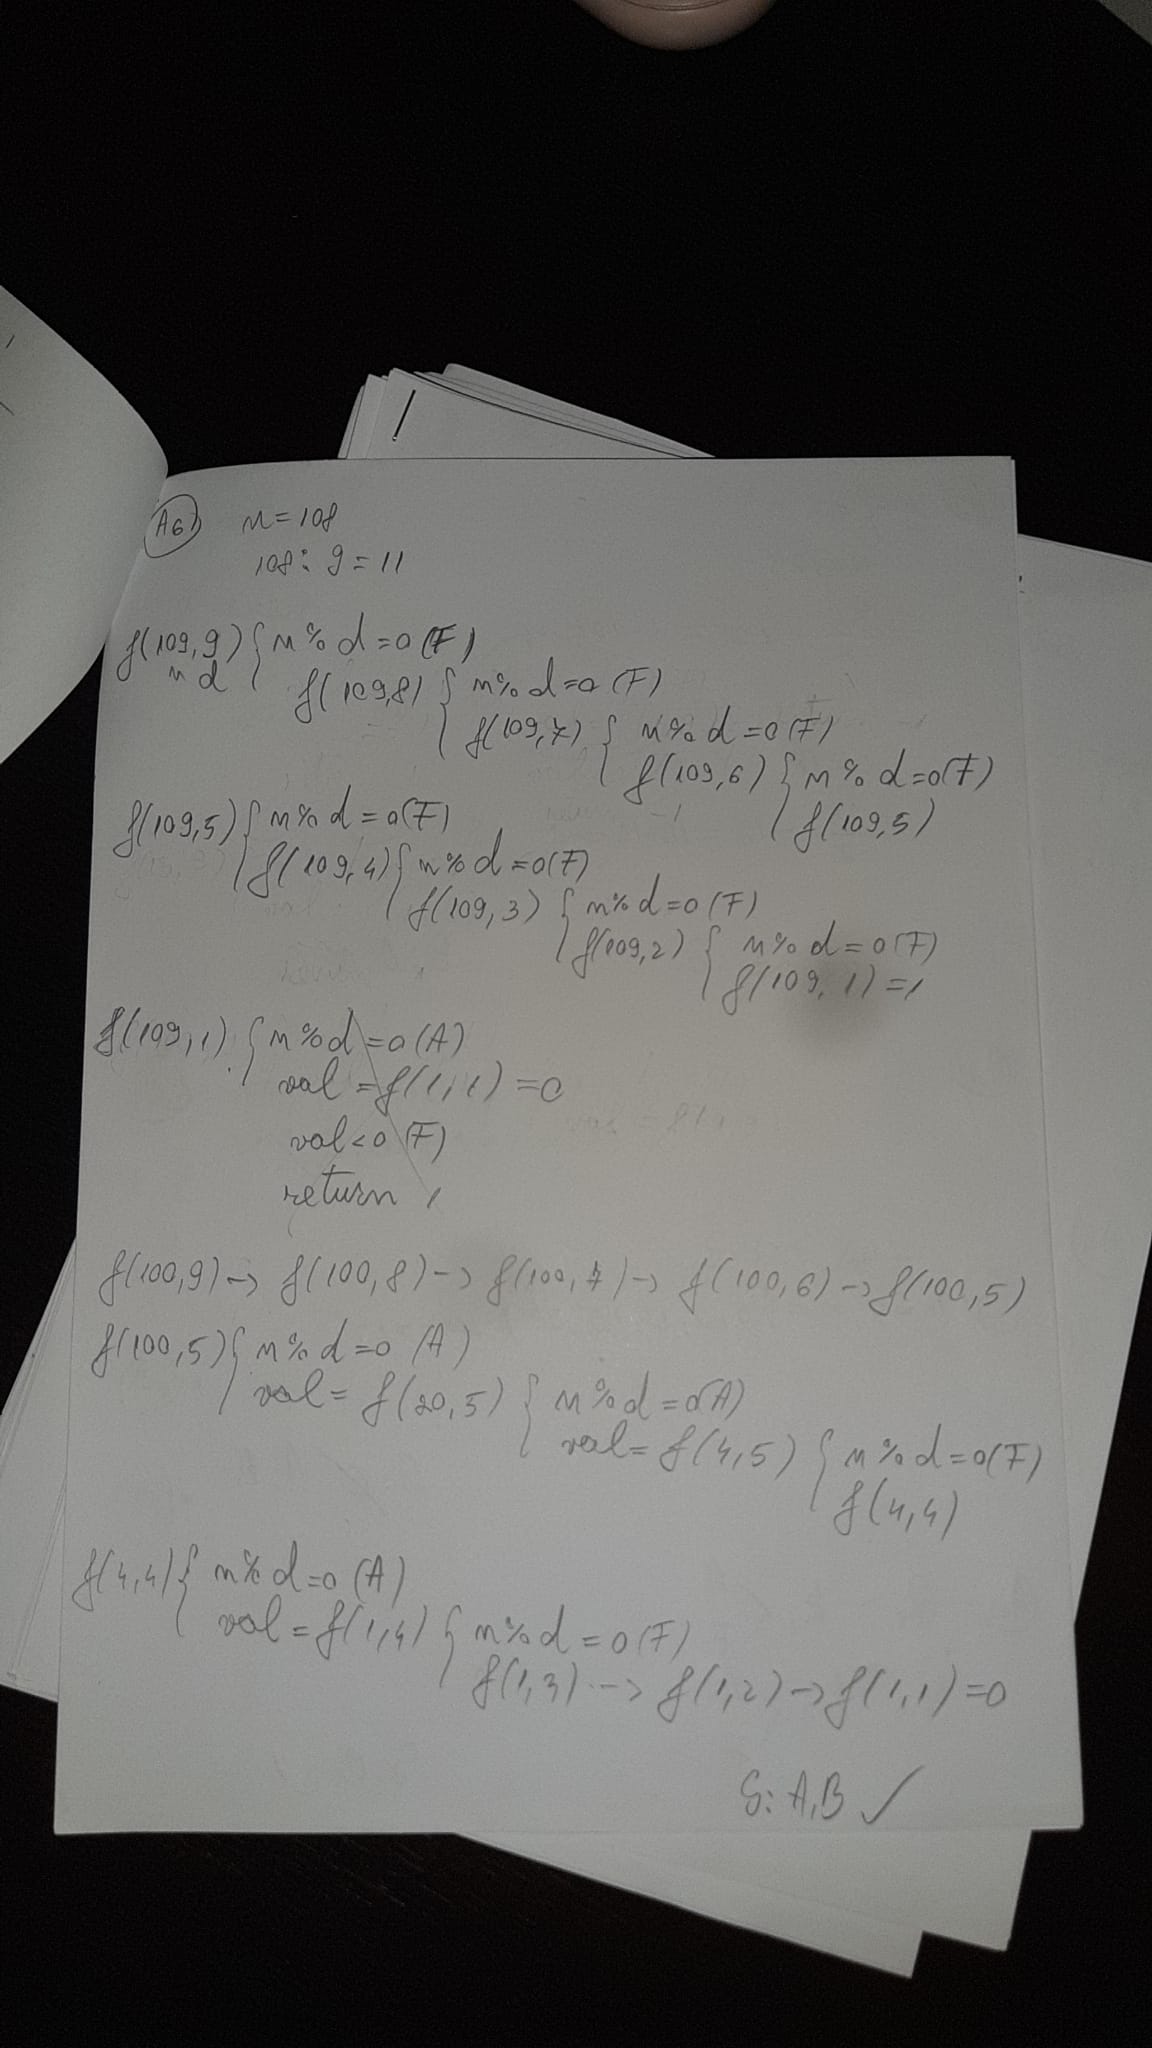 A6 n=108
108:9=11
f(109,9){n%d=0(F)
n d
f(109,8){n%d=0(F)
f(109,7){n%d=0(F)
f(109,6){n%d=0(F)
f(109,5)
f(109,5){n%d=0(F)
f(109,4){n%d=0(F)
f(109,3){n%d=0(F)
f(109,2){n%d=0(F)
f(109,1)=1
f(109,1){n%d=0(A)
val=f(1,1)=0
val<0(F)
return 1
f(100,9)->f(100,8)->f(100,7)->f(100,6)->f(100,5)
f(100,5){n%d=0(A)
val=f(20,5){n%d=0(A)
val=f(4,5){n%d=0(F)
f(4,4)
f(4,4){n%d=0(A)
val=f(1,4){n%d=0(F)
f(1,3)->f(1,2)->f(1,1)=0
S: A,B ✓